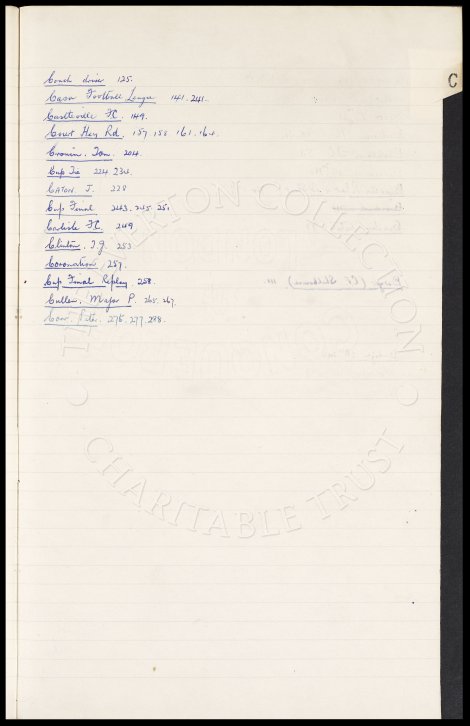 C
Coach driver 125.
Cason Football League 141. 241.
Coalville FC. 149.
Court Hey Rd. 157 158 161. 164.
Cronin. Tom. 204.
Cup Tie 224. 234.
CATON. J. 228
Cup Final 243. 245. 251.
Carlisle FC. 249
Clinton. T.J. 253
Coronation. 257.
Cup Final Replay. 258.
Cullen. Major P. 265. 267.
Corr. Peter. 275. 277. 288.
COLLECTION
CHARITABLE TRUST